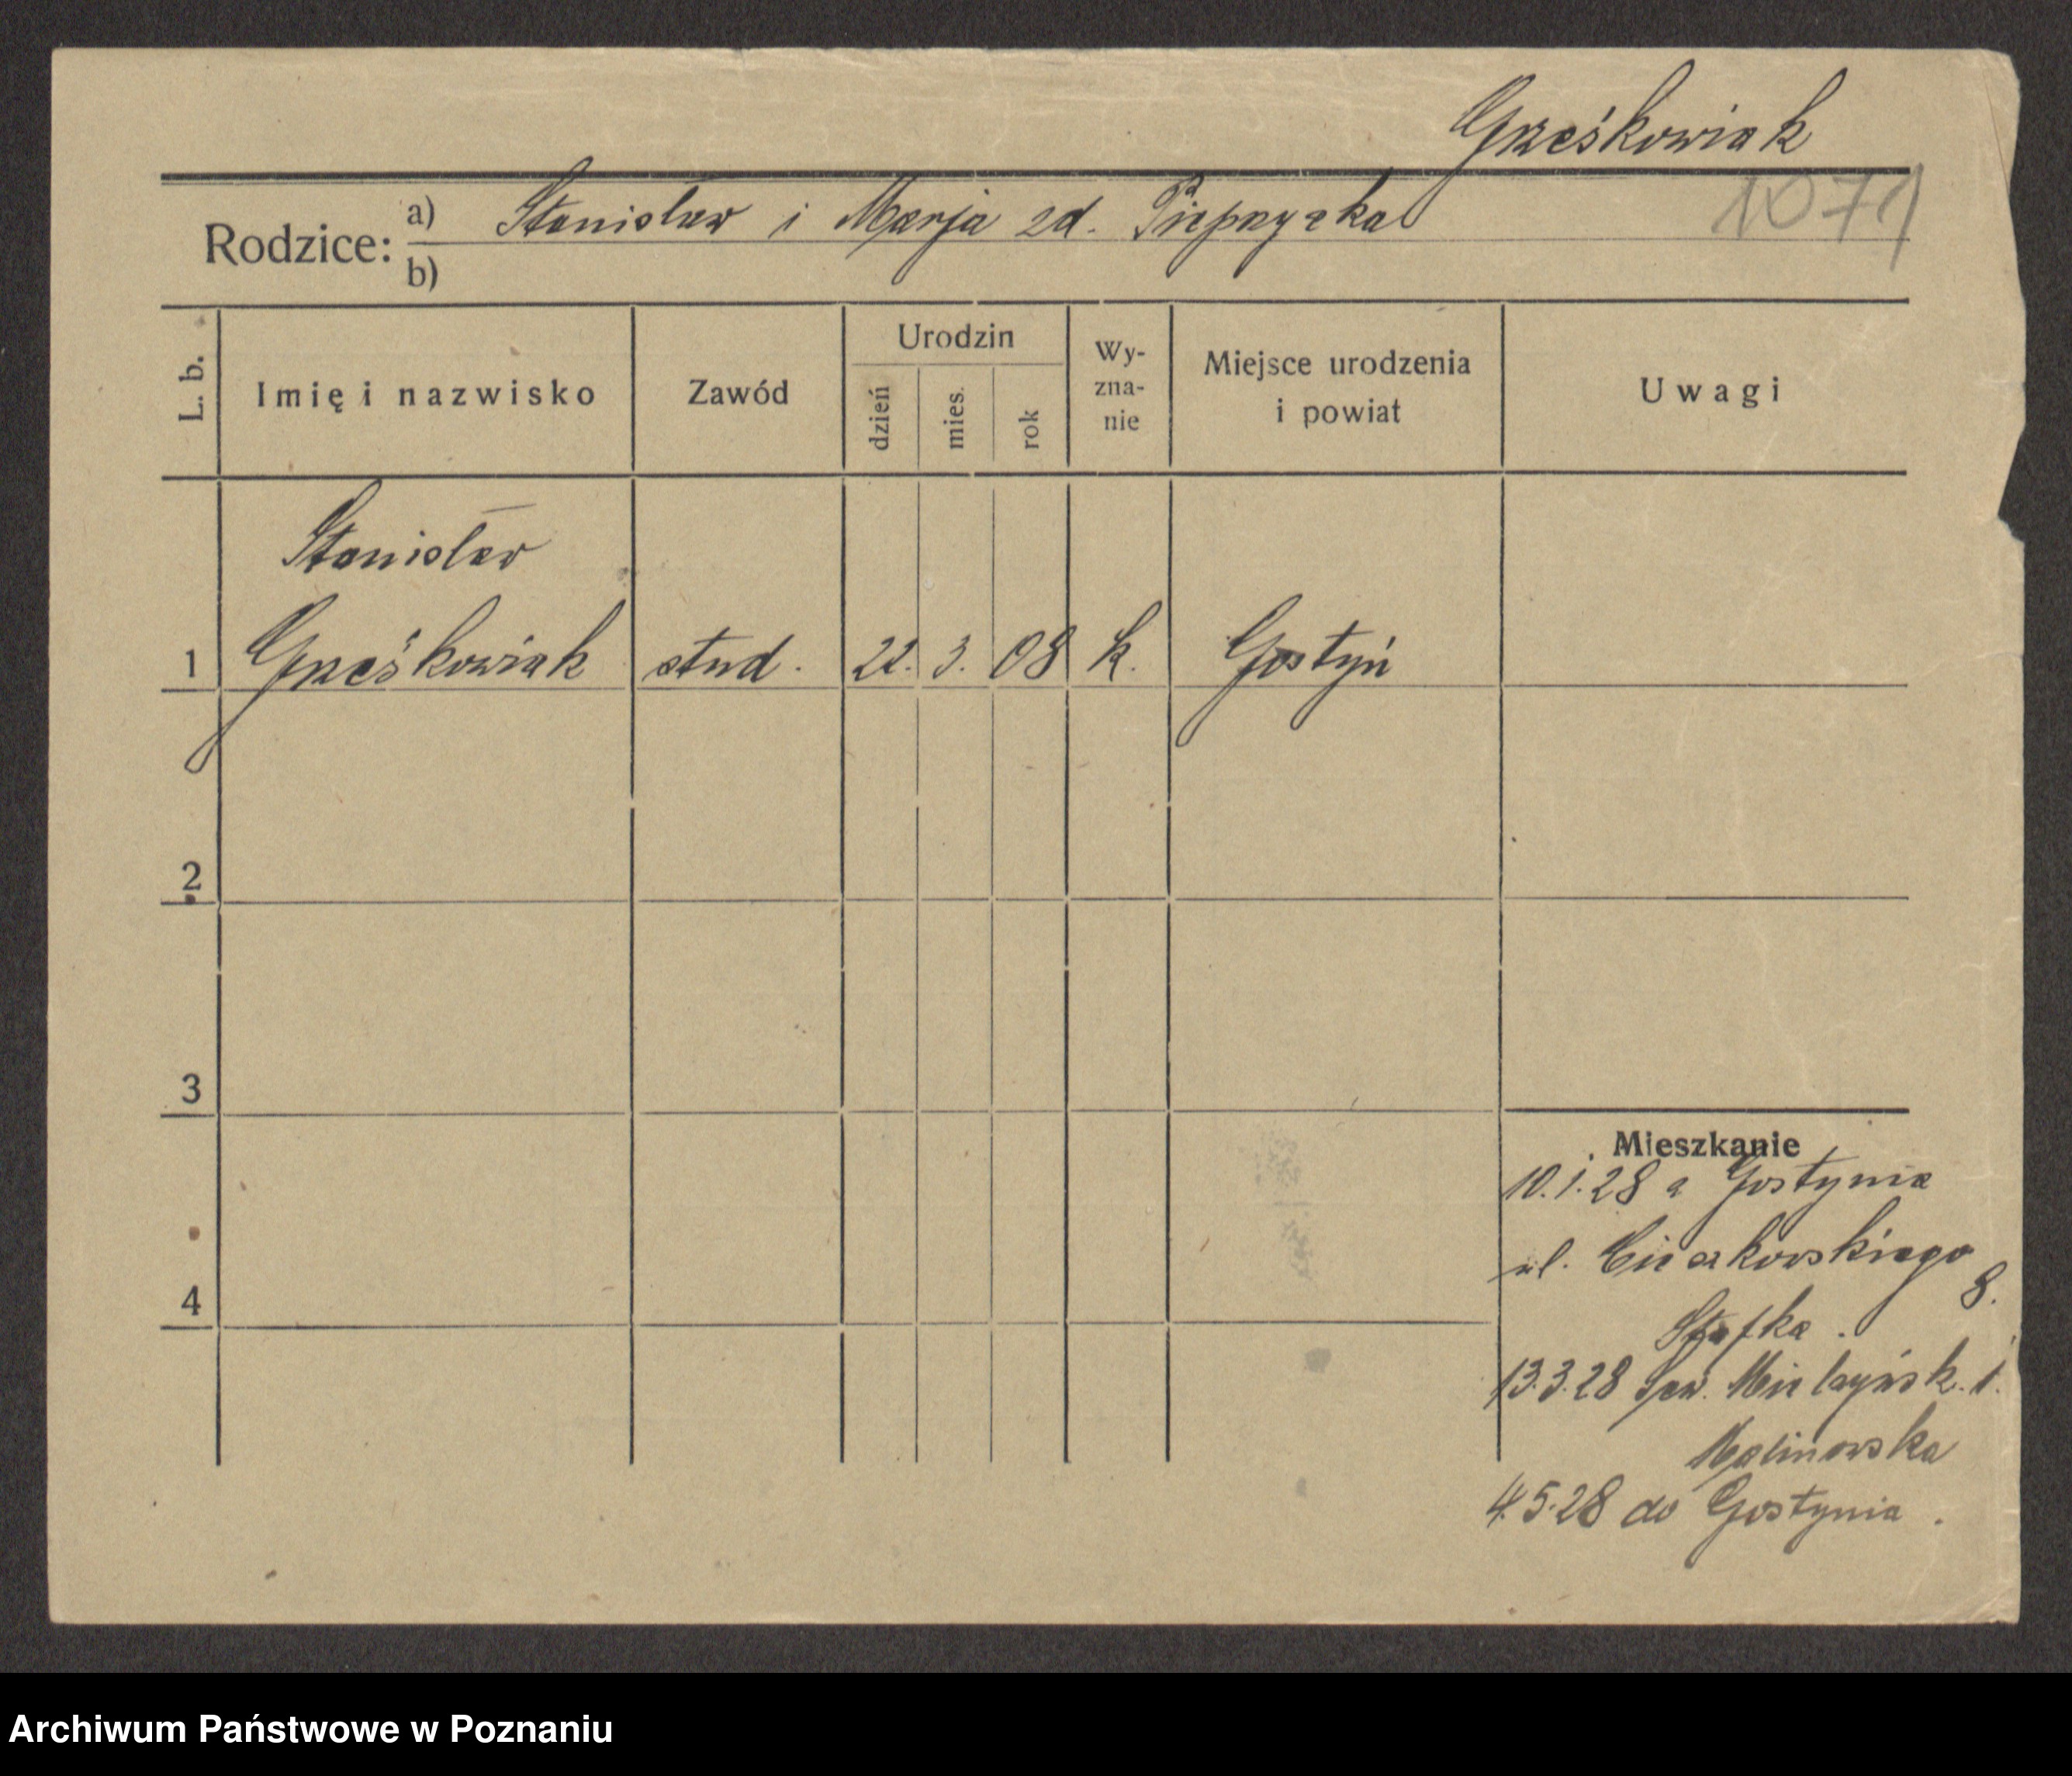 Grześkowiak
1071
Rodzice: a) Stanisław i Marja zd. Pieprzyzka
b)
L. b. Imię i nazwisko Zawód Urodzin dzień mies. rok Wy-zna-nie Miejsce urodzenia i powiat Uwagi
Stanisław
1 Grześkowiak stud. 22. 3. 08 k. Gostyń
2
3
4
Mieszkanie
10.1.28 z Gostynia
ul. Cieszkowskiego 8.
13.3.28 Sew. Mielzyńsk. 1.
Malinowska
4.5.28 do Gostynia.
Archiwum Państwowe w Poznaniu